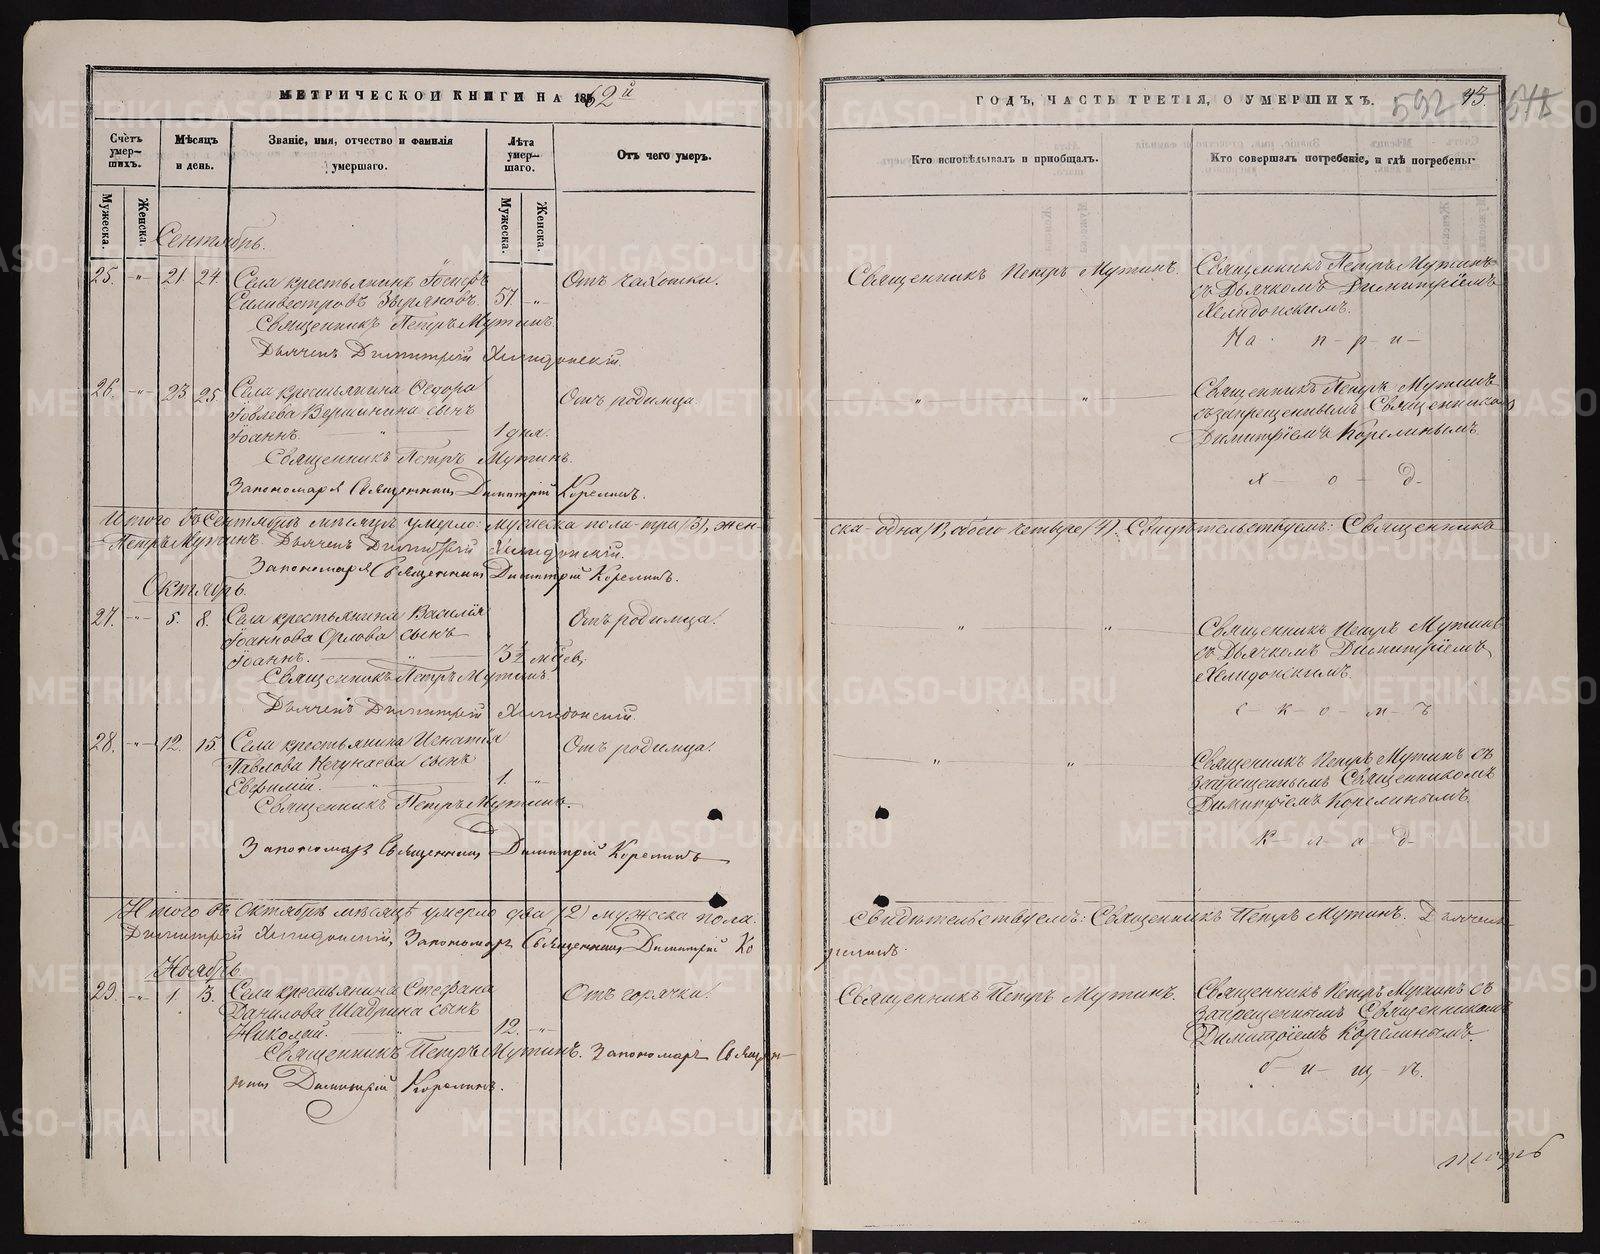 МЕТРИЧЕСКОЙ КНИГИ НА 1862й
Счетъ умер—шихъ.
Мѣсяцъ и день.
Званіе, имя, отчество и фамилія умершаго.
Лѣта умер—шаго.
Отъ чего умеръ.
Мужеска.
Женска.
Мужеска.
Женска.
Сентябрь.
25. -"- 21. 24. Села крестьянинъ Іосифъ Отъ чахотки.
Силивестровъ Зыряновъ. 57 -"-
Священникъ Петръ Мутинъ.
Дьячекъ Димитрій Хелидонскій.
26. -"- 23 25. Села крестьянина Ѳедора Отъ родимца.
Іовлева Вершинина сынъ
Іоаннъ. " 1 дня.
Священникъ Петръ Мутинъ.
Запономаря Священникъ Димитрій Корелинъ.
Итого въ Сентябрѣ мѣсяцѣ умерло: мужеска пола-три (3), жен-
Петръ Мутинъ. Дьячекъ Димитрій Хелидонскій.
Запономаря Священникъ Димитрій Корелинъ.
Октябрь.
27. -"- 5. 8. Села крестьянина Василія Отъ родимца.
Іоаннова Орлова сынъ
Іоаннъ. " 3½ мѣсев.
Священникъ Петръ Мутинъ.
Дьячекъ Димитрій Хелидонскій.
28. -"- 12. 15. Села крестьянина Игнатія Отъ родимца.
Павлова Нечунаева сынъ
Евфимій. " 1. -"-
Священникъ Петръ Мутинъ.
Запономаря Священникъ Димитрій Корелинъ
Итого въ Октябрѣ мѣсяцѣ умерло два (2) мужеска пола.
Димитрій Хелидонскій, Запономаря Священникъ Димитрій Ко
Ноябрь.
29. -"- 1 3. Села крестьянина Стефана Отъ горячки.
Данилова Шадрина сынъ
Николай. " 12. -"-
Священникъ Петръ Мутинъ. Запономаря Священ-
никъ Димитрій Корелинъ.
ГОДЪ, ЧАСТЬ ТРЕТІЯ, О УМЕРШИХЪ. 592 43.
Кто исповѣдывалъ и пріобщалъ.
Кто совершалъ погребеніе, и гдѣ погребены.
Священникъ Петръ Мутинъ. Священникъ Петръ Мутинъ
съ Дьячкомъ Димитріемъ
Хелидонскимъ.
На п-р-и-
" " Священникъ Петръ Мутинъ
съ запрещеннымъ Священникомъ
Димитріемъ Корелинымъ.
х - о - д-
ска-одна (1), обоего четыре (4). Свидѣтельствуемъ: Священникъ
" " Священникъ Петръ Мутинъ
съ Дьячкомъ Димитріемъ
Хелидонскимъ.
с - к - о - м - ъ
" " Священникъ Петръ Мутинъ съ
запрещеннымъ Священникомъ
Димитріемъ Корелинымъ.
к - л - а - д-
Свидѣтельствуемъ: Священникъ Петръ Мутинъ. Дьячекъ
релинъ.
Священникъ Петръ Мутинъ. Священникъ Петръ Мутинъ съ
запрещеннымъ Священникомъ
Димитріемъ Корелинымъ.
б - и - щ - ѣ.
METRIKI.GASO-URAL.RU